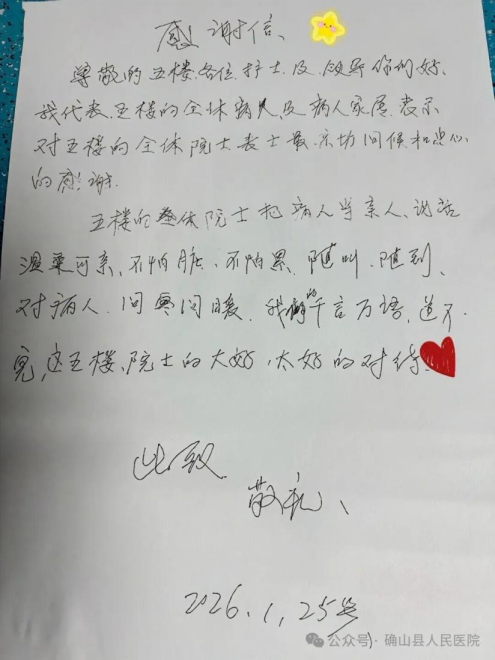 感谢信、
尊敬的五楼各位护士及领导你们好、
我代表五楼的全体病人及病人家属表示
对五楼的全体院士表士最示切问候和忠心
的感谢.
五楼的整体院士把病人当亲人、说话
温栗可亲、不怕脏、不怕累、随叫、随到、
对病人、问寒问暖、我们的千言万语,道不
完,这五楼、院士的大好,太好的对待.
此致
敬礼、
2026.1,25号
公众号 · 确山县人民医院